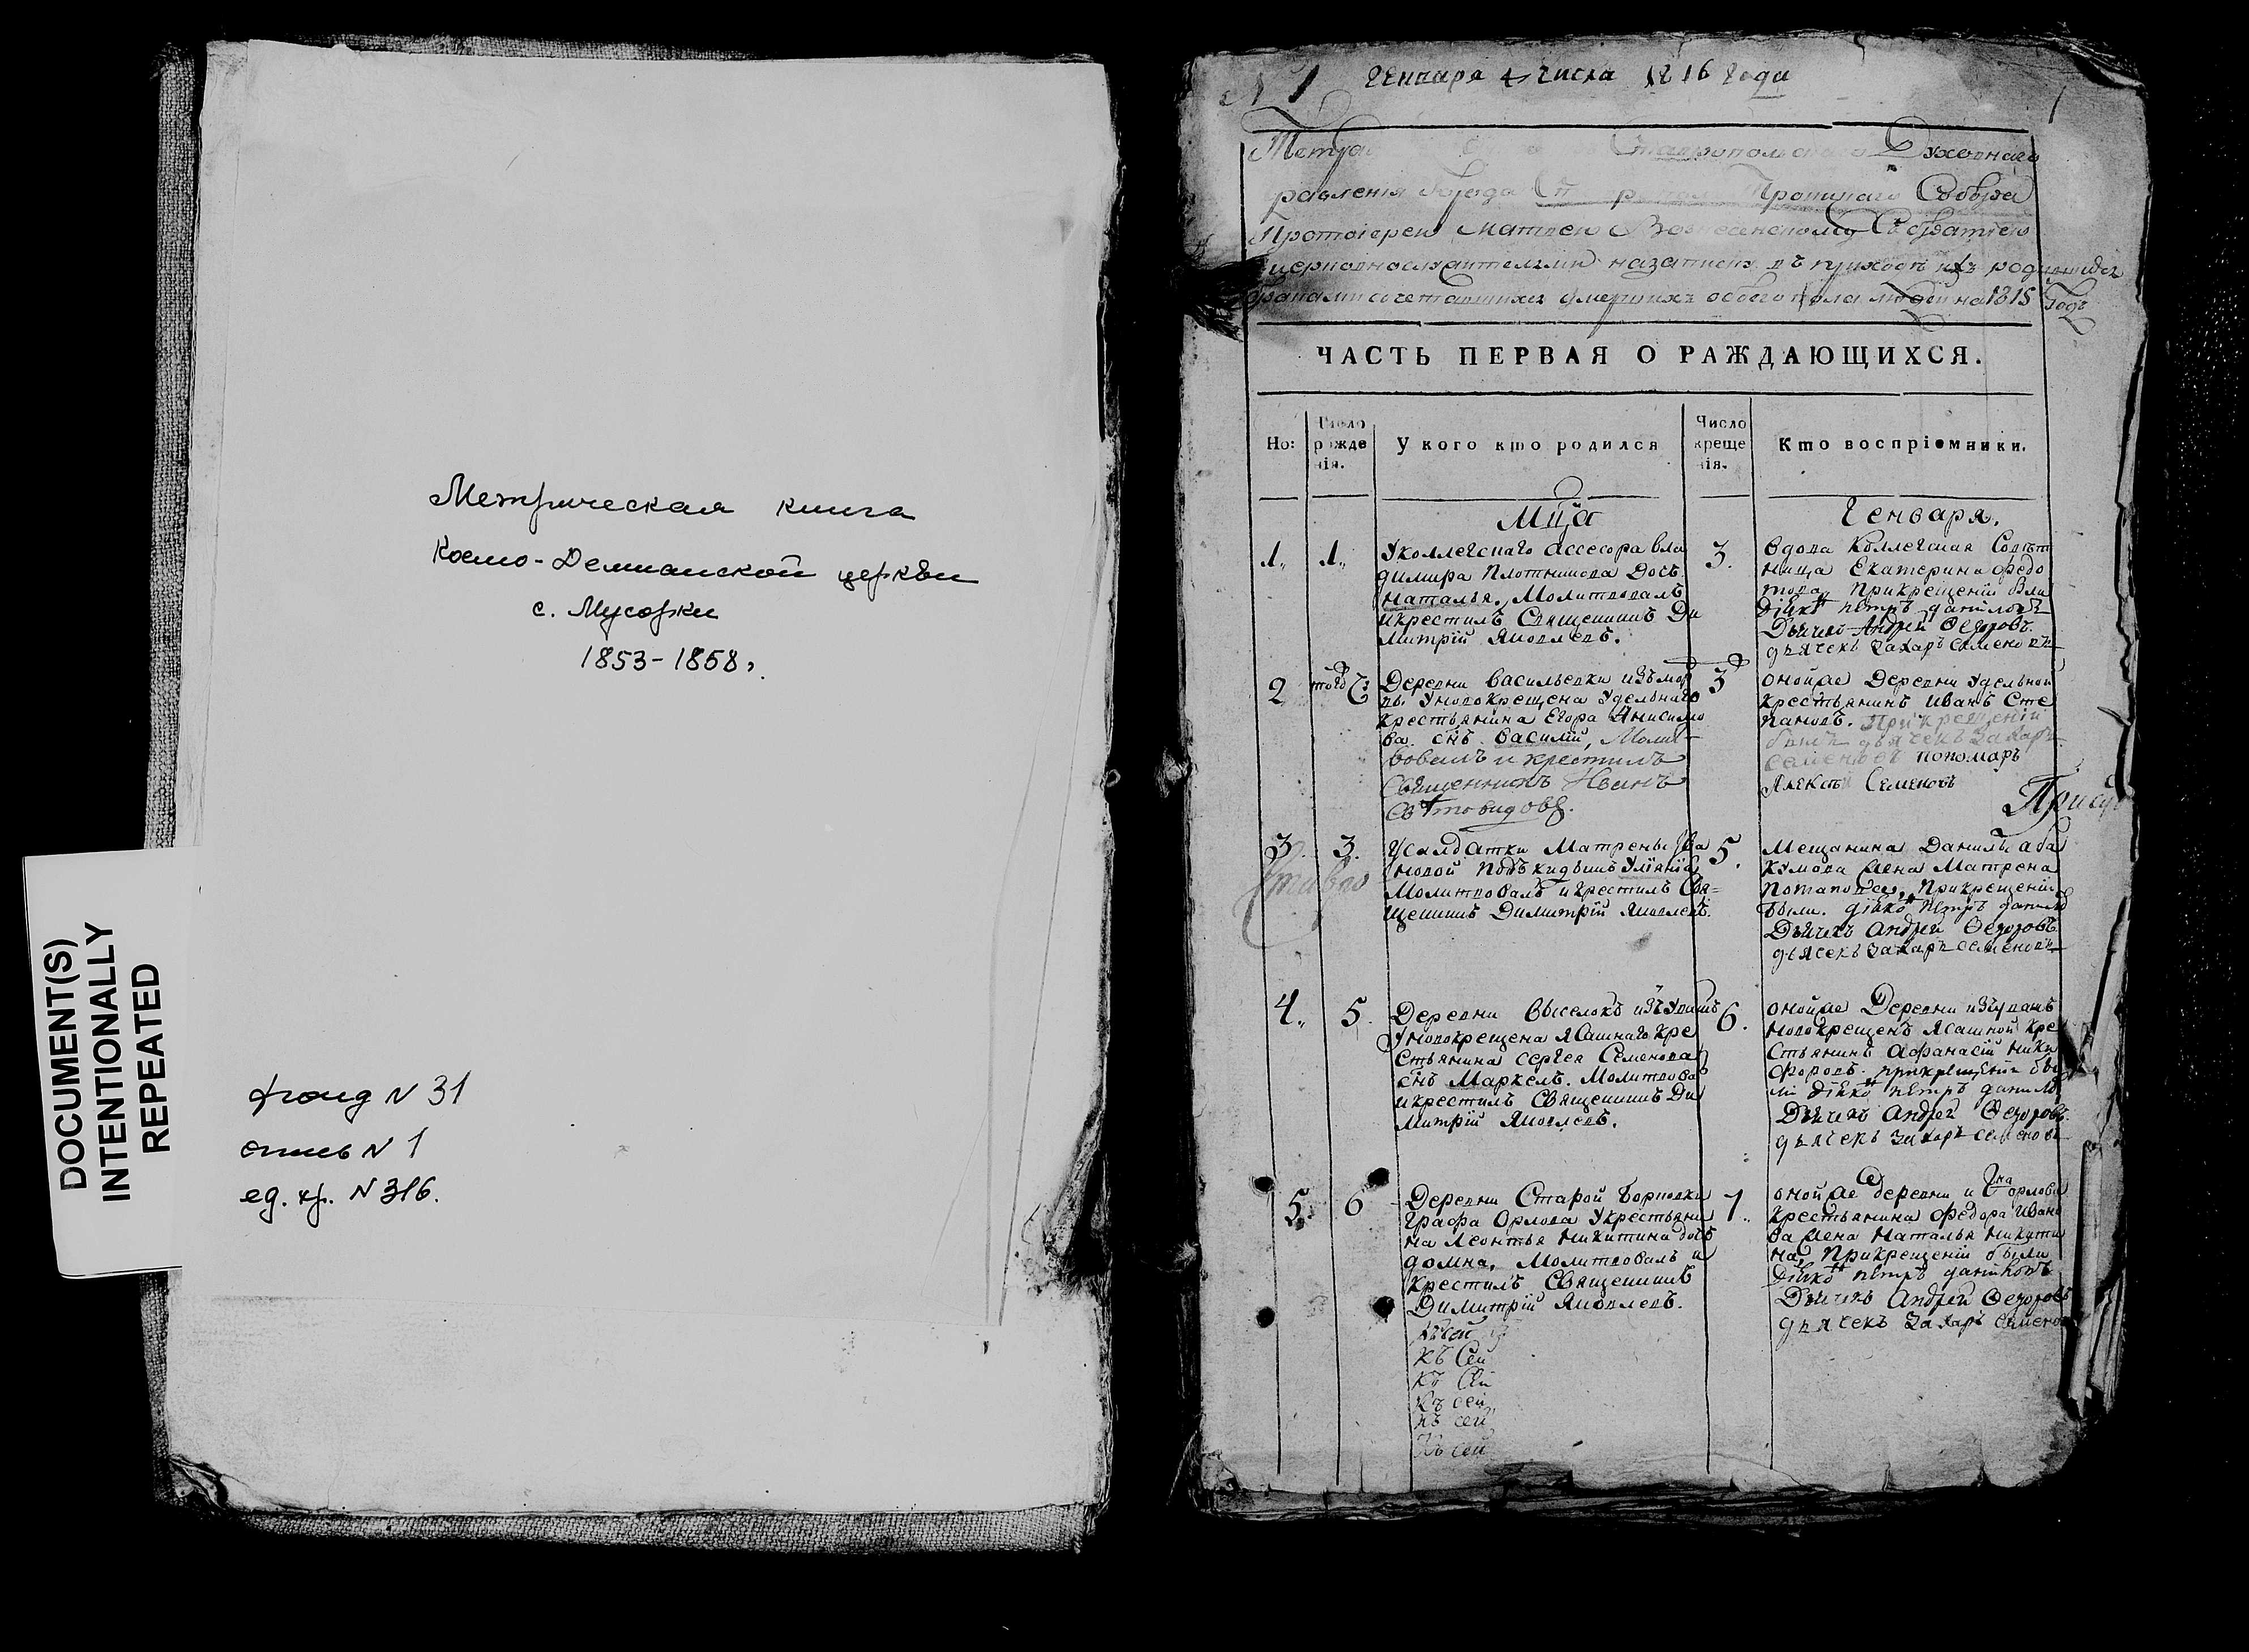 DOCUMENT(S)
INTENTIONALLY
REPEATED
Метрическая книга
Космо-Демианской церкви
с. Мусорки
1853-1858,
фонд N 31
опись N 1
ед. хр. N 316.
N 1 Генваря 4 числа 1816 года
Ставропольскаго Духовнаго
равления города Собора
Протоіерею Матвею Вознесенскому Съ братіею
назаписку въ приходѣ ихъ
умершихъ обоего пола людей на 1815 Годъ
ЧАСТЬ ПЕРВАЯ О РАЖДАЮЩИХСЯ.
Но:
Число рожде нія.
У кого кто родился
Число креще нія.
Кто воспріемники.
Мца Генваря.
1. 1.
Уколлегскаго ассесора Вла
димира Плотникова Дочь
Наталья. Молитвовалъ
икрестилъ Священникъ Ди
митрій Яковлевъ.
3.
вдова Коллегская Совѣт
ница Екатерина Федо
това, Прикрещеніи были
Діяконъ петръ даниловъ
Дьячекъ Андрей Федоровъ.
дьячекъ Захаръ Семеновъ
2 того
Деревни Васильевки изъ мор
вы Уновокрещена Удельнаго
крестьянина Егора Анисимо
ва снъ Василій, Молит
вовалъ и крестилъ
Священникъ Иванъ
Свѣтовидовъ.
3
оной же Деревни Удельной
крестьянинъ Иванъ Сте
пановъ. При крещеніи
былъ дьячекъ Захаръ
Семеновъ пономарь
Алексѣй Семеновъ
3. 3.
Усалдатки Матрены Ива
новой подъкидышъ Уліянія,
Молитвовалъ икрестилъ Свя=
щенникъ Димитрій Яковлевъ.
5.
Мещанина Данилы Аба
кумова жена Матрена
Потапова, Прикрещеніи
были. діяконъ петръ данилов
Дьячекъ Андрей Федоровъ
дьячекъ Захаръ Семеновъ
4. 5.
Деревни Выселокъ изъчувашъ
Уновокрещена Ясашнаго кре
стьянина Сергея Семенова
снъ Маркелъ. Молитвова
икрестилъ Священникъ Ди
митрій Яковлевъ.
6.
оной же Деревни изчувашъ
новокрещенъ Ясашной кре
стьянинъ Афанасій Ники
форовъ. прикрещеніи бы
ли діяконъ петръ данилов
Дьячекъ Андрей Федоровъ.
дьячекъ Захаръ Семеновъ
5. 6
Деревни Старой Борковки
Графа Орлова Укрестьяни
на Леонтья Никитина дочь
домна, Молитвовалъ и
крестилъ Священникъ
Димитрій Яковлевъ.
къ сей
къ сей
къ сей
къ сей
къ сей
7.
оной же деревни и Гна Орлова
крестьянина Федора Ивано
ва жена Наталья Никити
на, Прикрещеніи были
діяконъ петръ даниловъ
Дьячекъ Андрей Федоровъ
дьячекъ Захаръ Семенов